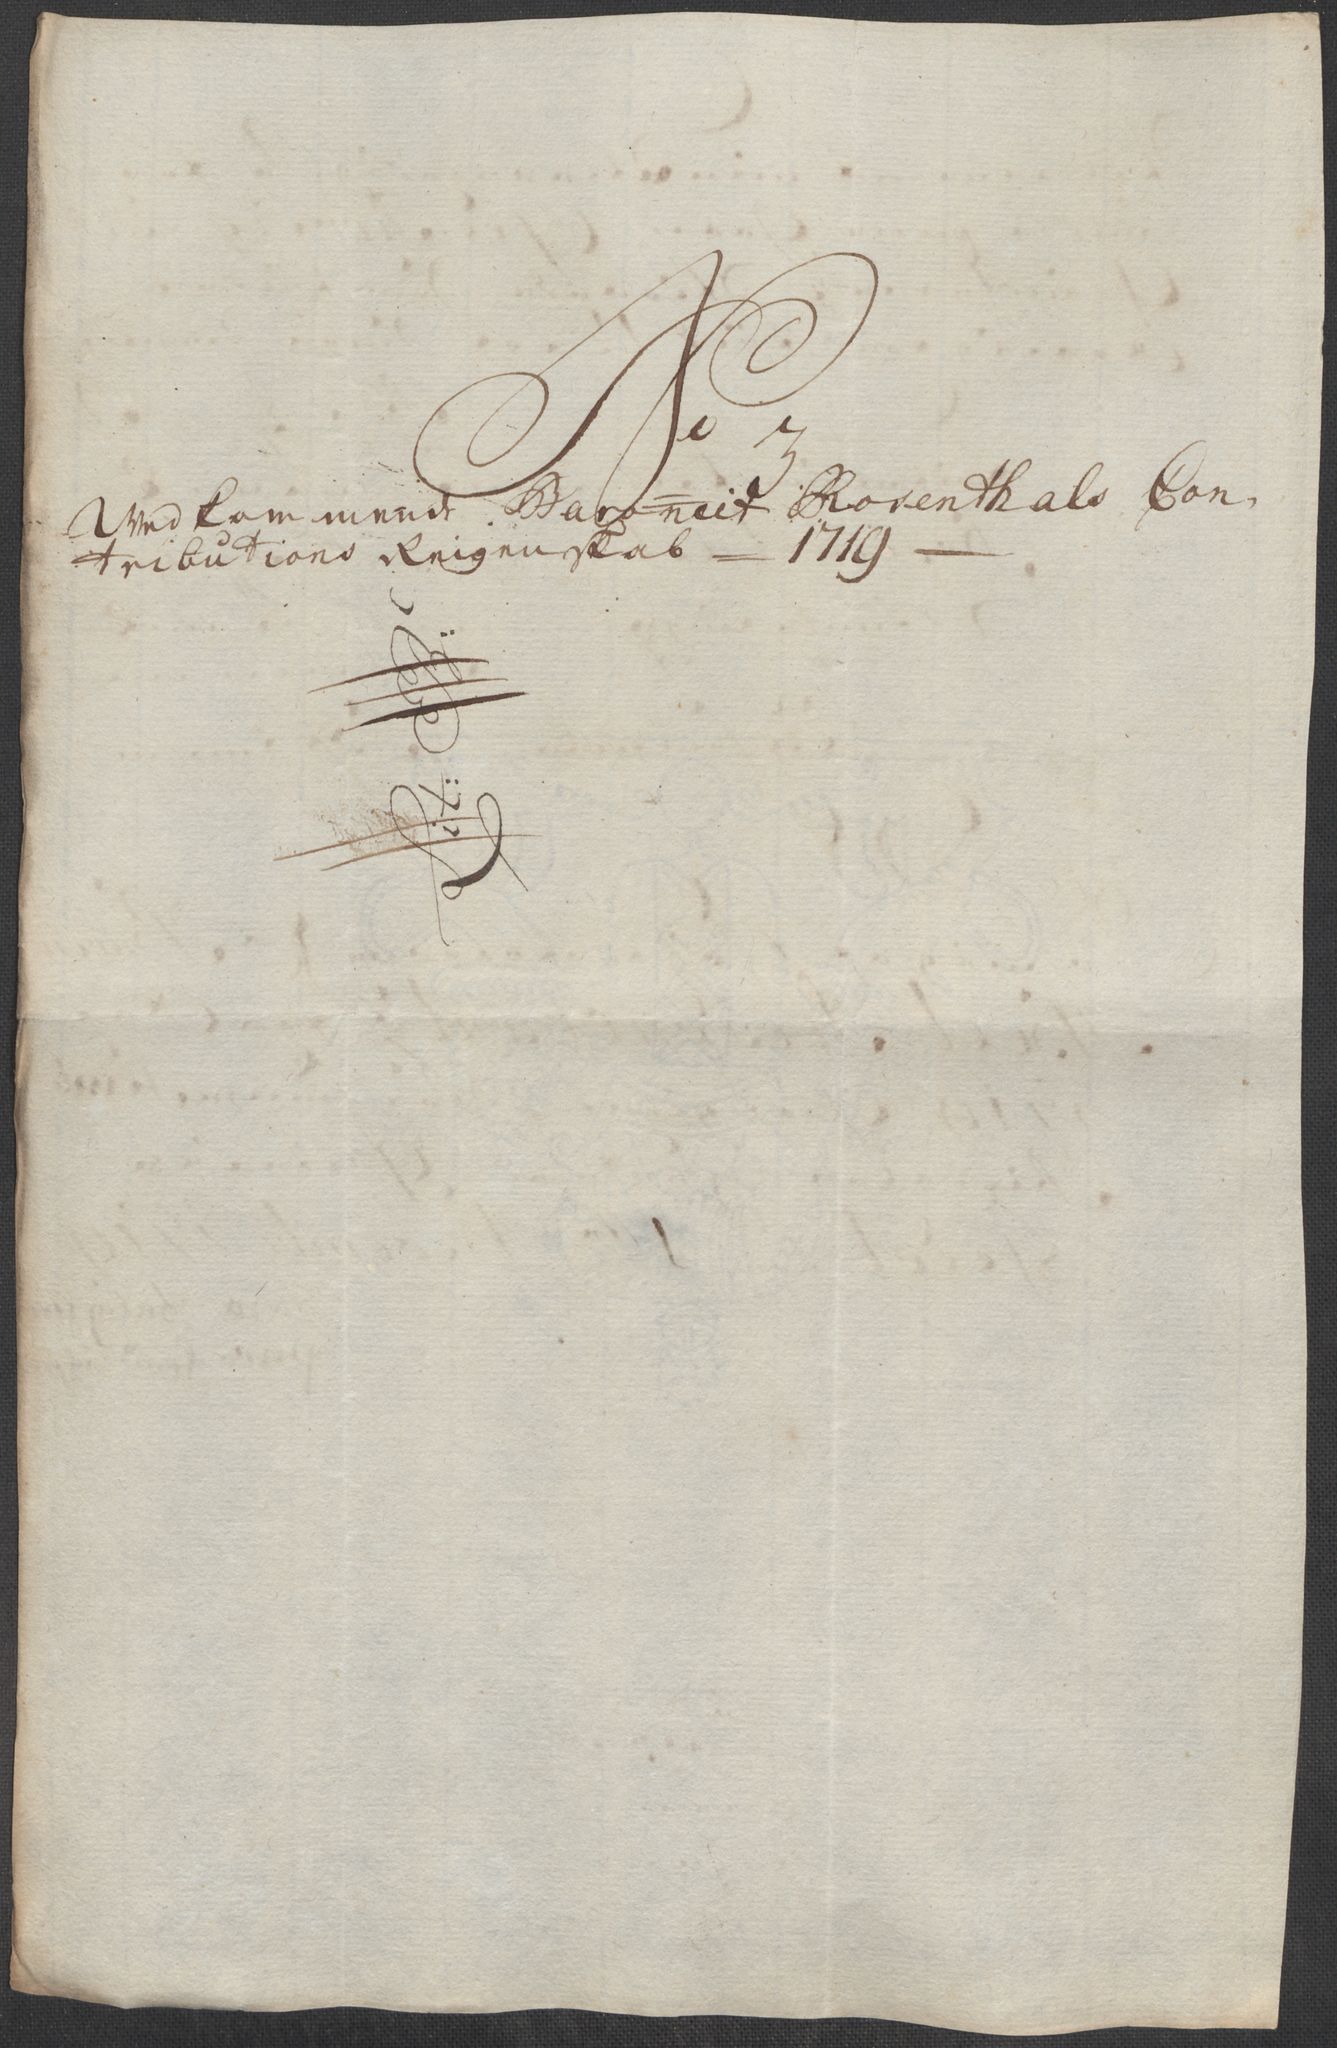 No 3
Ved kommende Baroneit Rosenthals Con,
tributions Reigenskab — 1719 —